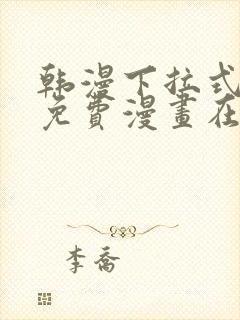 韩漫下拉式
免費漫畫在
李喬